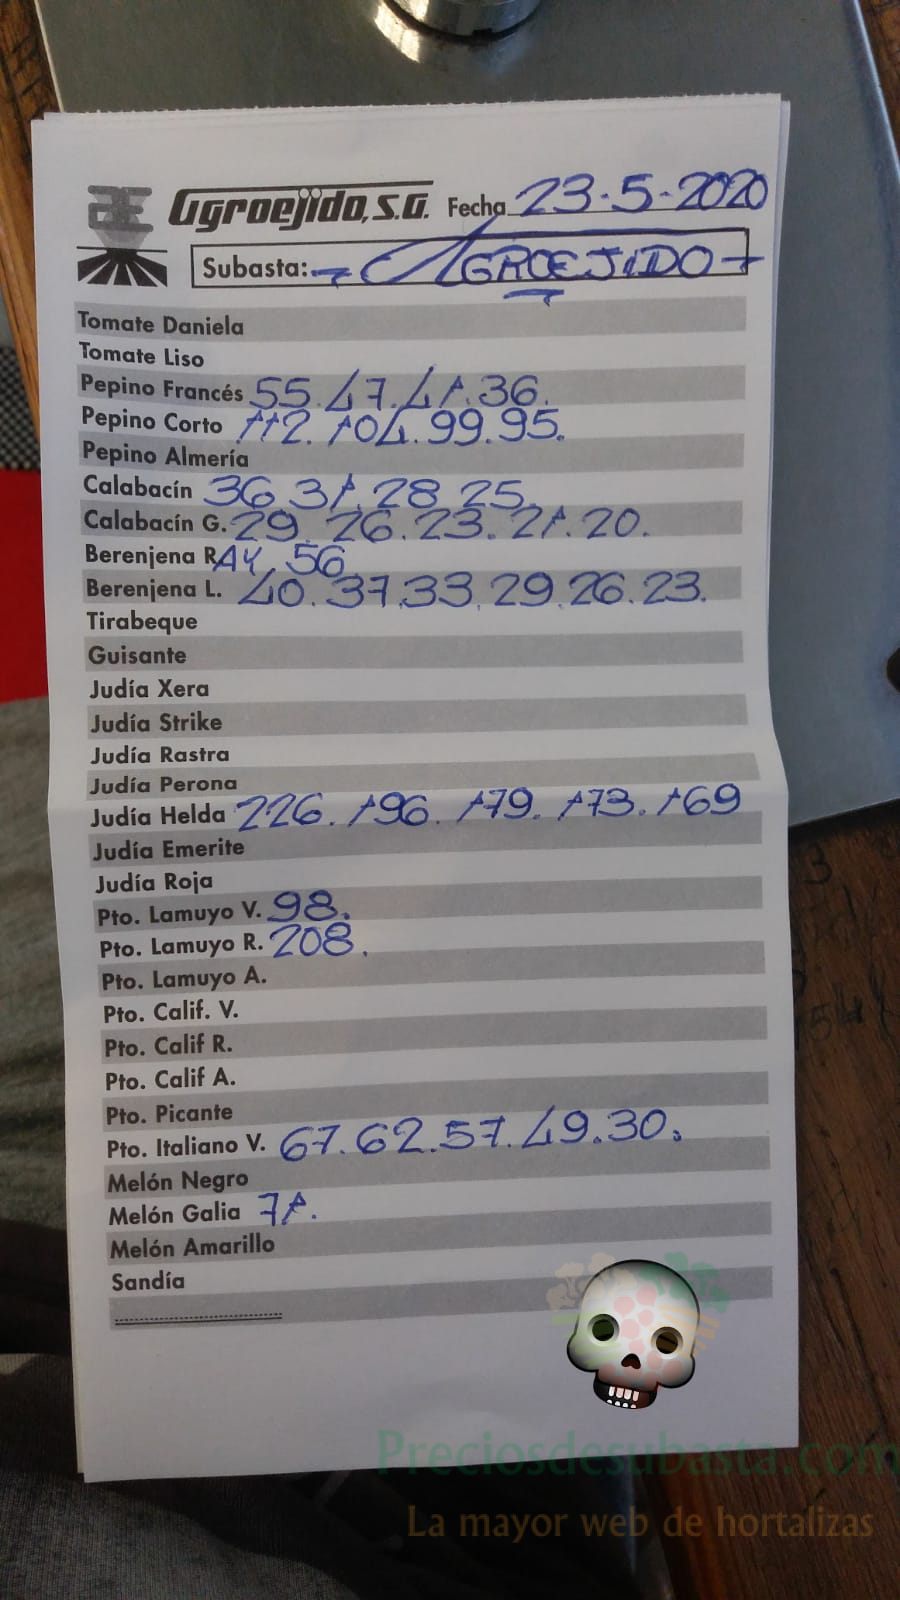 Agroejido, S.A. Fecha 23-5-2020
Subasta: - AGROEJIDO -
Tomate Daniela
Tomate Liso
Pepino Francés 55.47.41.36.
Pepino Corto 112.104.99.95.
Pepino Almería
Calabacín 36.31.28.25.
Calabacín G. 29.26.23.21.20.
Berenjena RAY. 56
Berenjena L. 40.37.33.29.26.23.
Tirabeque
Guisante
Judía Xera
Judía Strike
Judía Rastra
Judía Perona
Judía Helda 226.196.179.173.169
Judía Emerite
Judía Roja
Pto. Lamuyo V. 98.
Pto. Lamuyo R. 208.
Pto. Lamuyo A.
Pto. Calif. V.
Pto. Calif R.
Pto. Calif A.
Pto. Picante
Pto. Italiano V. 67.62.57.49.30.
Melón Negro
Melón Galia 71.
Melón Amarillo
Sandía
Preciosdesubasta.com
La mayor web de hortalizas